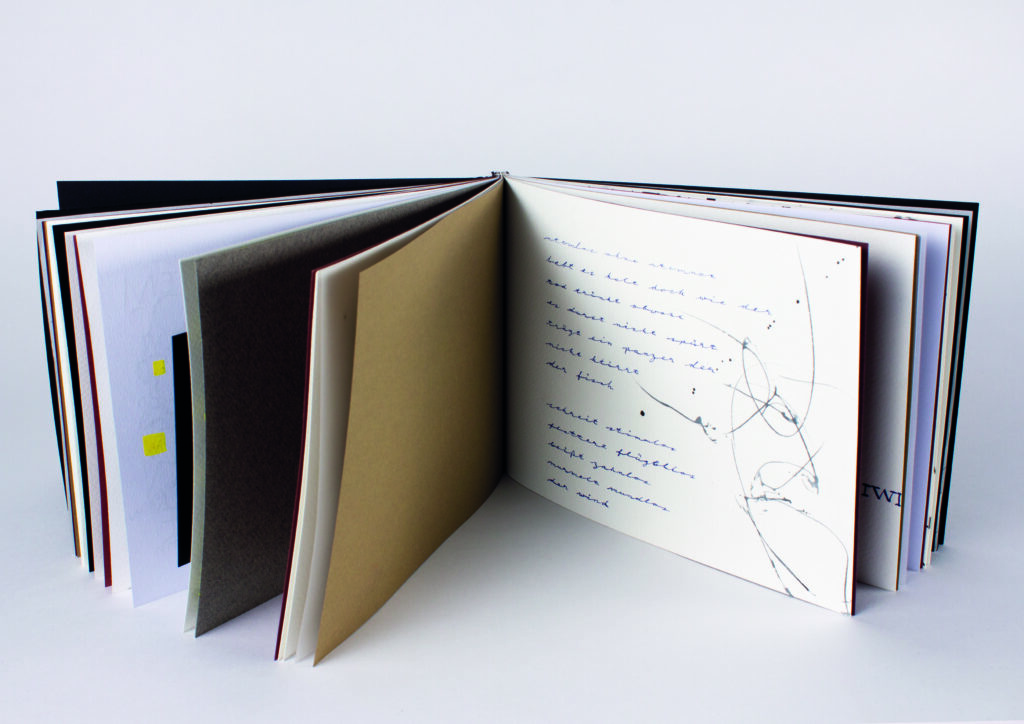 atemlos ohne
lebt es kalt doch wie der
tod trinkt obwohl
es durst nicht spürt
trägt ein panzer der
nicht klirrt
der fisch
schreit stimmlos
flattert flügellos
beißt zahnlos
murmelt mundlos
der wind